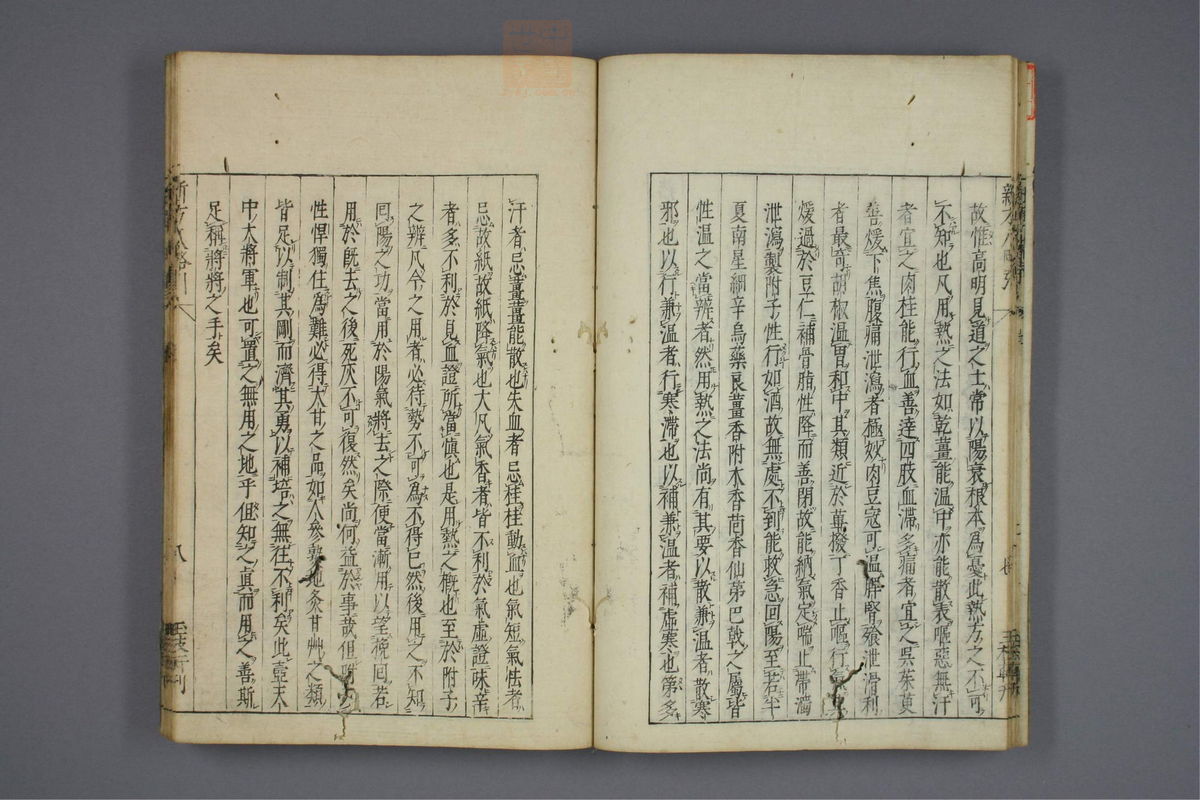 故惟高明見道之士常以陽衰根本為憂此熱方之不可
不知也凡用熱之法如乾薑能溫中亦能散表嘔惡無汗
者宜之肉桂能行血善達四肢血滯多痛者宜之吳茱萸
善煖下焦腹痛泄瀉者極妙肉豆寇可溫脾腎飱泄滑利
者最奇胡椒溫胃和中其類近於蓽撥丁香止嘔行
煖過於豆仁補骨脂性降而善閉故能納氣定喘止帶濁
泄瀉製附子性行如酒故無處不到能救急回陽至若半
夏南星細辛烏藥良薑香附木香茴香仙茅巴戟之屬皆
性溫之當辨者然用熱之法尚有其要以散兼溫者散寒
邪也以行兼溫者行寒滯也以補兼溫者補虛寒也第多
汗者忌薑薑能散也失血者忌桂桂動血也氣短氣怯者
忌故紙故紙降氣也大凡氣香者皆不利於氣虛證味辛
者多不利於見血證所當慎也是用熱之槪也至於附子
之辨凡今之用者必待勢不可為不得已然後用之不知
囘陽之功當用於陽氣將去之際便當漸用以望挽囘若
用於旣去之後死灰不可復然矣尚何益於事哉但附
性悍獨任為難必得大甘之品如人參熟地炙甘艸之類
皆足以制其剛而濟其勇以補培之無往不利矣此壼天
中大將軍也可置之無用之地乎但知之真而用之善斯
足稱將將之手矣
八